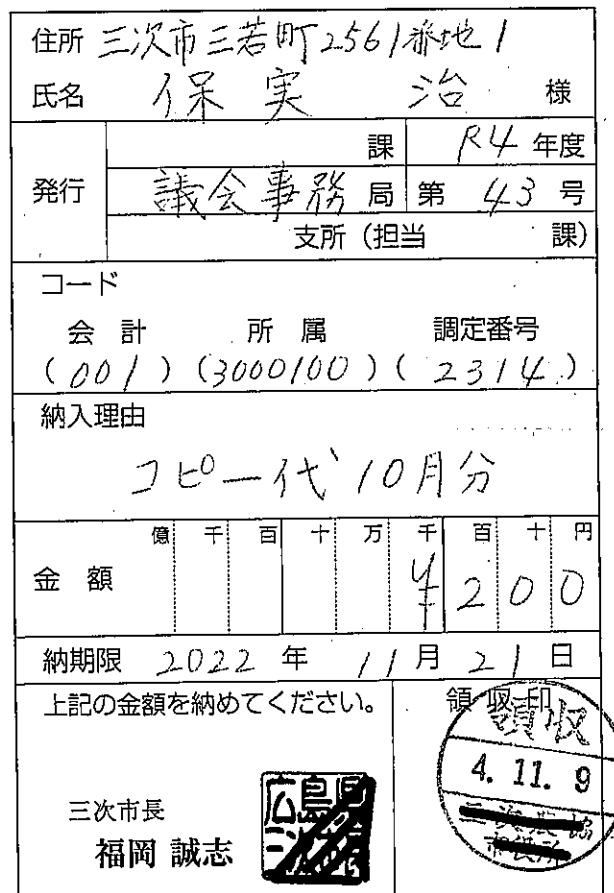 住所 三次市三若町2561番地1
氏名 保実 治 様
発行
課 R4年度
議会事務局 第 43 号
支所（担当 課）
コード
会計 所属 調定番号
(001) (3000100) (2314)
納入理由
コピー代10月分
億 千 百 十 万 千 百 十 円
金額 ¥200
納期限 2022年11月21日
上記の金額を納めてください。
領収印
領収
4. 11. 9
三次市長
福岡 誠志